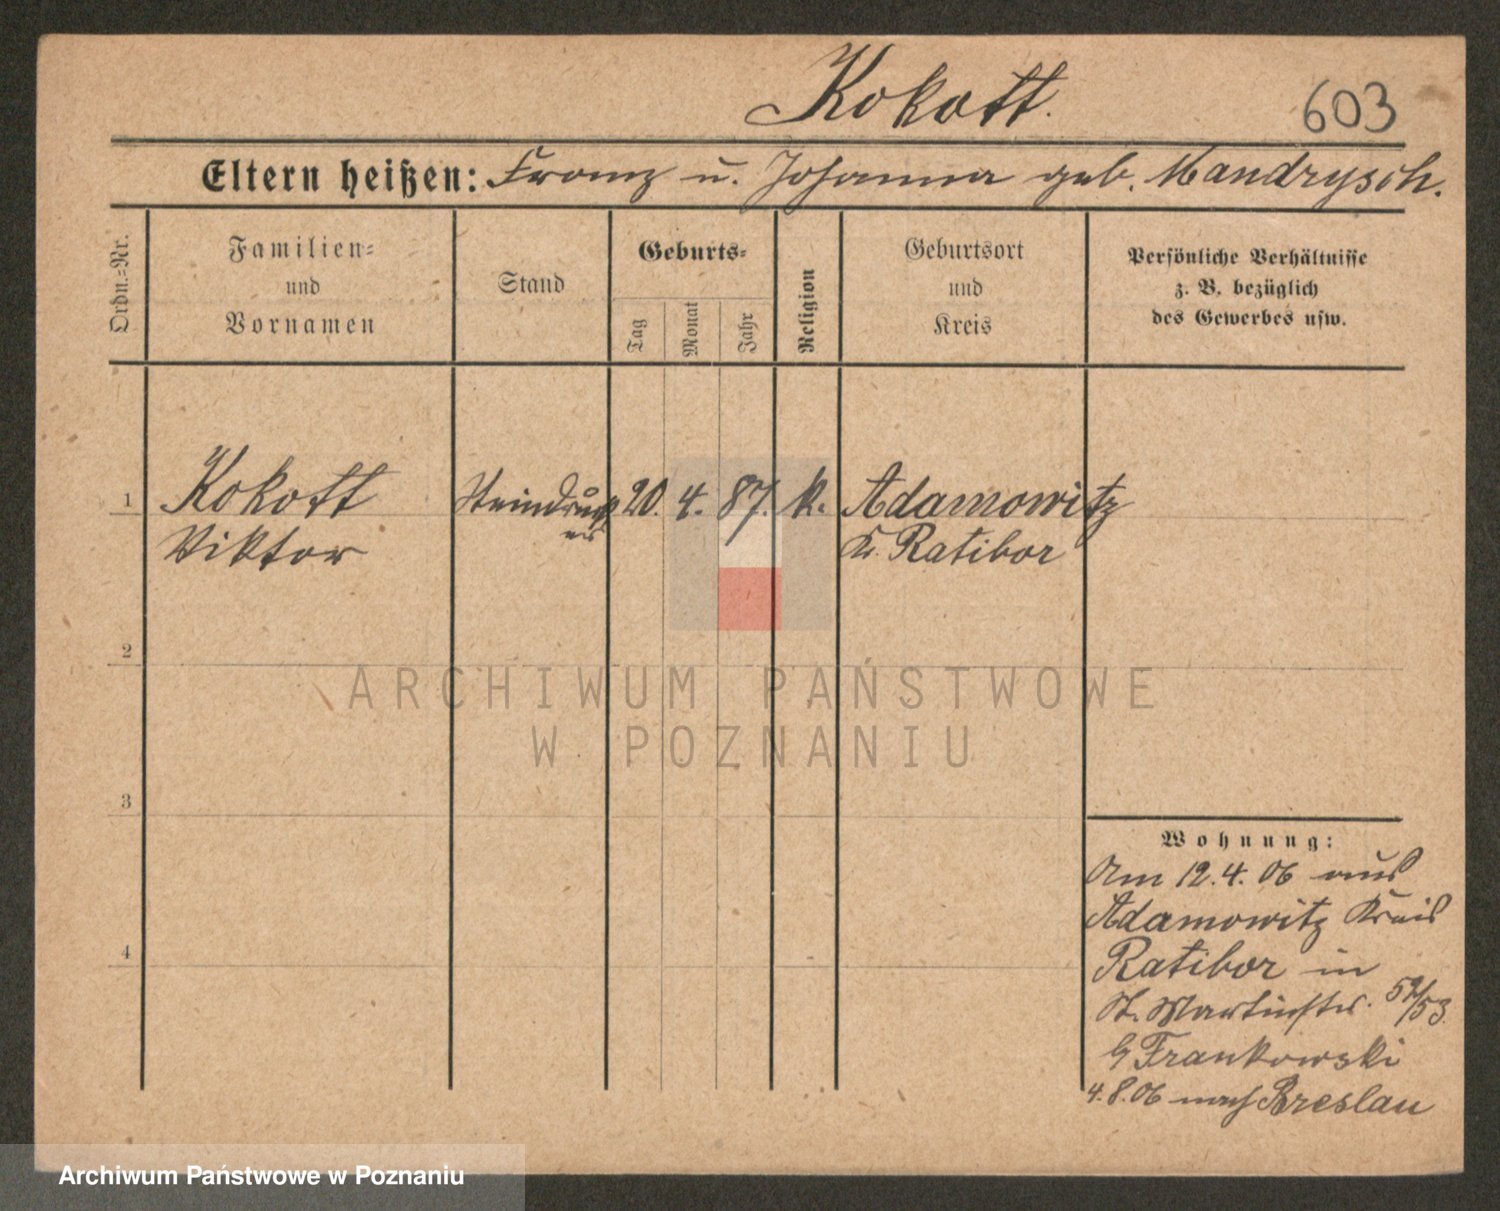 Kokott.
603
Eltern heißen: Franz u. Johanna geb. Mandrysch.
Ordn.=Nr.
Familien=
und
Vornamen
Stand
Geburts=
Tag
Monat
Jahr
Religion
Geburtsort
und
Kreis
Persönliche Verhältnisse
z. B. bezüglich
des Gewerbes usw.
1 Kokott Steindruck 20. 4. 87. k. Adamowitz
er
Viktor Kr. Ratibor
2
ARCHIWUM PAŃSTWOWE
W POZNANIU
3
Wohnung:
Am 12.4.06 aus
Adamowitz Kreis
Ratibor in
St. Martinstr. 52/53.
b/ Frankowski
4.8.06 nach Breslau
4
Archiwum Państwowe w Poznaniu